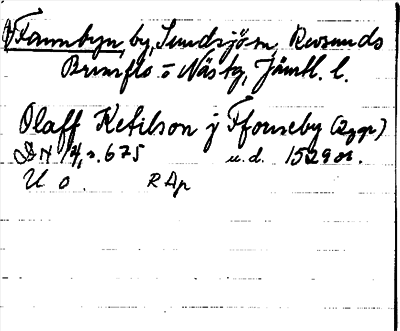 Fannbyn, by, Sundsjö sn, Revsunds
Brunflo o Näs tg, Jämtl. l.
Olaff Ketilson j Fforneby (2 ggr)
DN 14, s. 675 u. d. 1529 or.
U o. R Ap